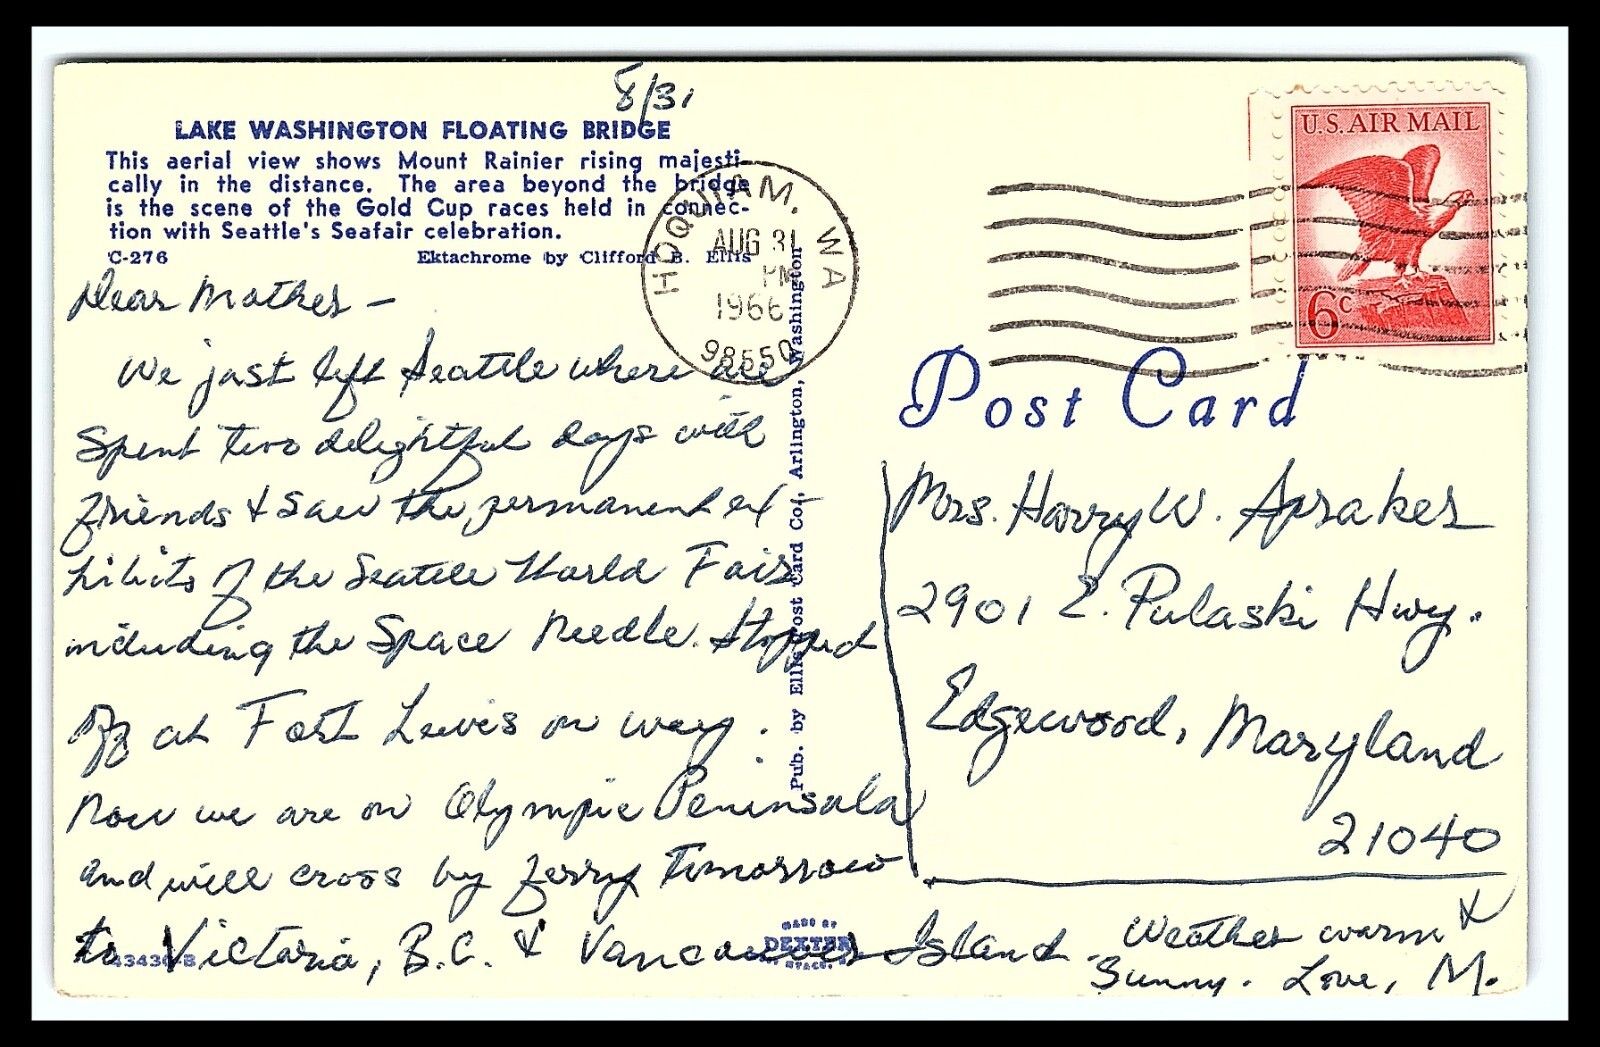 8/31
LAKE WASHINGTON FLOATING BRIDGE
This aerial view shows Mount Rainier rising majesti-
cally in the distance. The area beyond the bridge
is the scene of the Gold Cup races held in connec-
tion with Seattle's Seafair celebration.
C-276 Ektachrome by Clifford B. Ellis
HOQUIAM. WA
AUG 31
PM
1966
98550
U.S. AIR MAIL
6c
Post Card
Dear Mother –
We just left Seattle where we
spent two delightful days with
friends & saw the permanent ex-
hibits of the Seattle World Fair
including the Space Needle. Stopped
off at Fort Lewis on way.
Now we are on Olympic Peninsula
and will cross by ferry tomorrow
to Victoria, B.C. & Vancouver Island. Weather warm &
Sunny. Love, M.
Pub. by Ellis Post Card Co., Arlington, Washington
Mrs. Harry W. Spraker
2901 E. Pulaski Hwy.
Edgewood, Maryland
21040
MADE BY
DEXTER